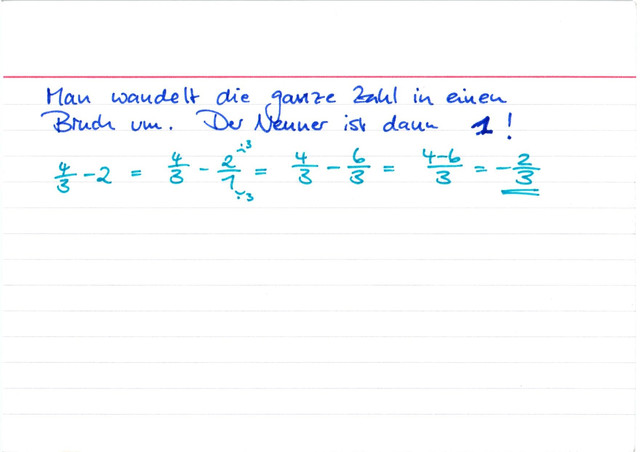 Man wandelt die ganze Zahl in einen
Bruch um. Der Nenner ist dann 1!
4/3 - 2 = 4/3 - 2/1 = 4/3 - 6/3 = (4-6)/3 = -2/3